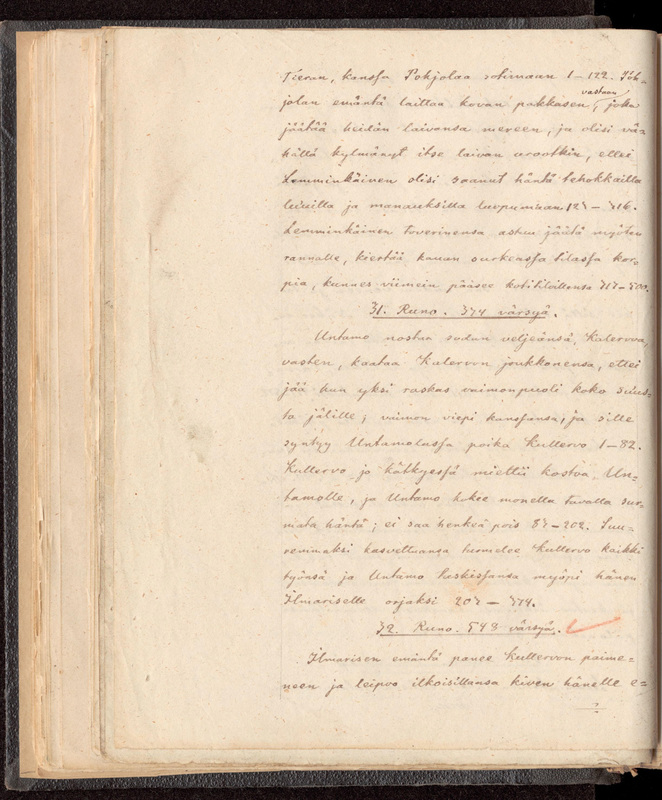 Tieran, kanssa Pohjolaa sotimaan 1–122. Poh-
jolan emäntä laittaa kovan pakkasen vastaan, joka
jäätää heidän laivansa mereen, ja olisi vä-
hältä kylmänyt itse laivan urootkin, ellei
Lemminkäinen olisi saanut häntä tehokkailla
luvuilla ja manauksilla luopumaan 123–316.
Lemminkäinen toverinensa astuu jäätä myöten
rannalle, kiertää kauan surkeassa tilassa kor-
pia, kunnes viimein pääsee kotitiloillensa 317–500.
31. Runo. 374 värsyä.
Untamo nostaa sodan veljeänsä, Kalervoa,
vasten, kaataa Kalervon joukkonensa, ettei
jää kun yksi raskas vaimonpuoli koko suus-
ta jälille; vaimon viepi kanssansa, ja sille
syntyy Untamolassa poika Kullervo 1–82.
Kullervo jo kätkyessä miettii kostoa Un-
tamolle, ja Untamo kokee monella tavalla sur-
mata häntä; ei saa henkeä pois 83–202. Suu-
remmaksi kasvettuansa turmelee Kullervo kaikki
työnsä ja Untamo tuskissansa myöpi hänen
Ilmariselle orjaksi 203–374.
32. Runo. 548 värsyä.
Ilmarisen emäntä panee Kullervon paime-
neen ja leipoo ilkoisillansa kiven hänelle e-